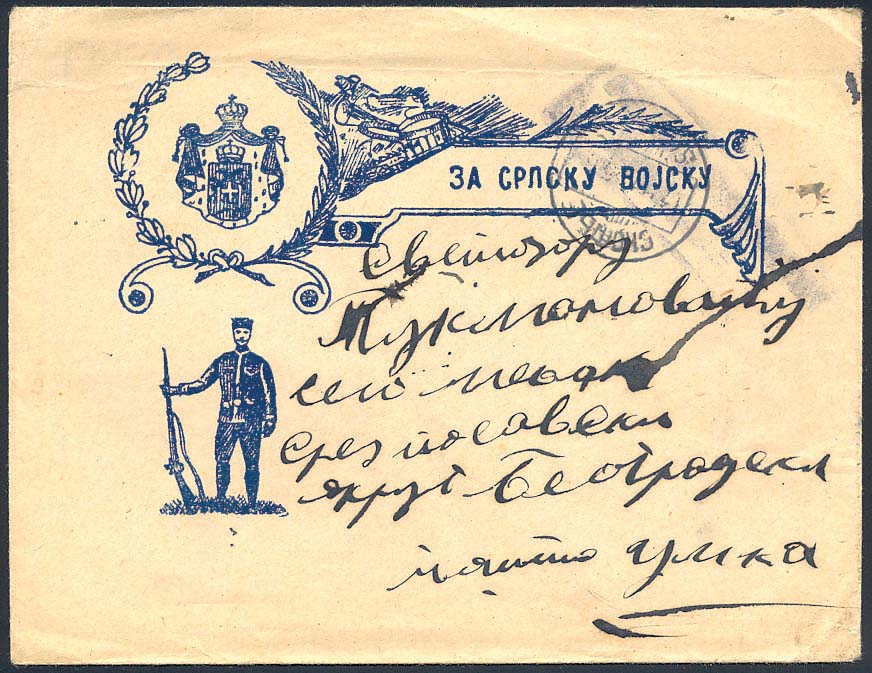 ЗА СРПСКУ ВОЈСКУ
Светозару
Тукмановићу
село
срез посавски
округ Београдски
пошта Умка